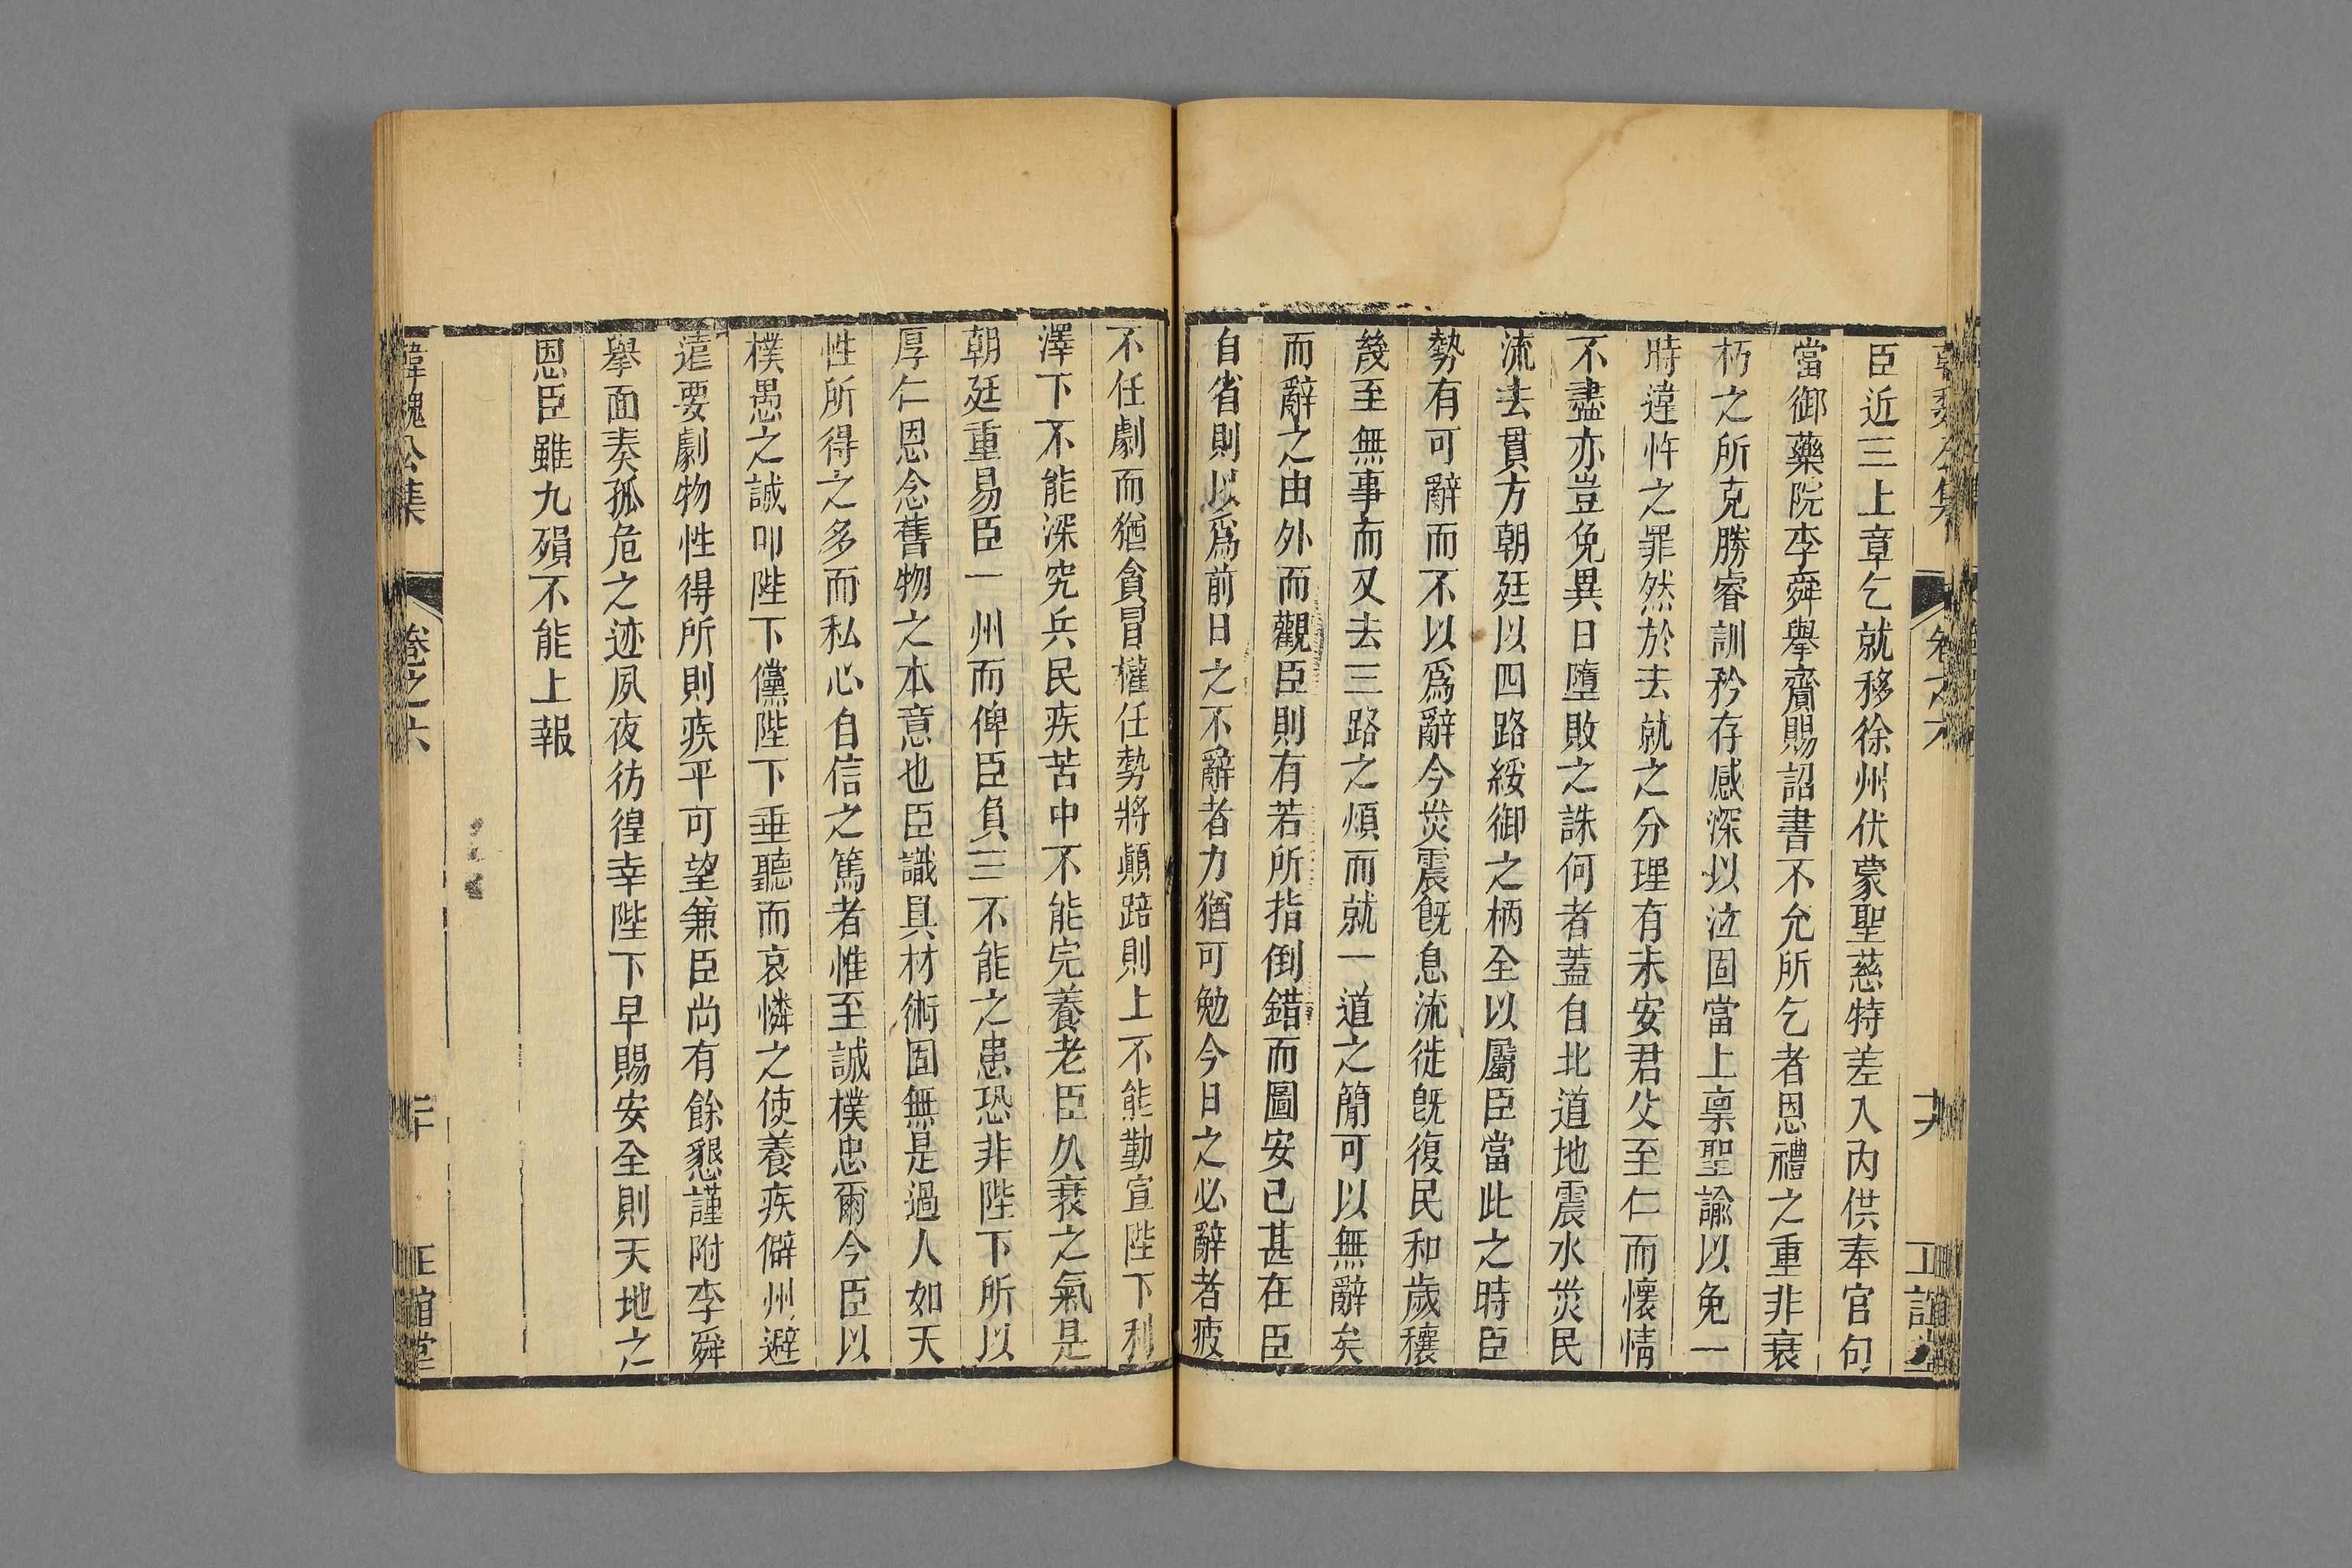 臣近三上章乞就移徐州伏蒙聖慈特差入內供奉官句
當御藥院李舜舉齎賜詔書不允所乞者恩禮之重非衰
朽之所克勝睿訓矜存感深以泣固當上稟聖諭以免一
時違忤之罪然於去就之分理有未安君父至仁而懷情
不盡亦豈免異日墮敗之誅何者蓋自北道地震水災民
流去貫方朝廷以四路綏御之柄全以屬臣當此之時臣
勢有可辭而不以爲辭今災震旣息流徙旣復民和歲穰
幾至無事而又去三路之煩而就一道之簡可以無辭矣
而辭之由外而觀臣則有若所指倒錯而圖安己甚在臣
自省則以爲前日之不辭者力猶可勉今日之必辭者疲
不任劇而猶貪冒權任勢將顚踣則上不能勤宣陛下利
澤下不能深究兵民疾苦中不能完養老臣久衰之氣是
朝廷重易臣一州而俾臣負三不能之患恐非陛下所以
厚仁恩念舊物之本意也臣識具材術固無是過人如天
性所得之多而私心自信之篤者惟至誠樸忠爾今臣以
樸愚之誠叩陛下儻陛下垂聽而哀憐之使養疾僻州避
遠要劇物性得所則疾平可望兼臣尚有餘懇謹附李舜
舉面奏孤危之迹夙夜彷徨幸陛下早賜安全則天地之
恩臣雖九殞不能上報
韓魏公集
卷之六
二十
正誼堂